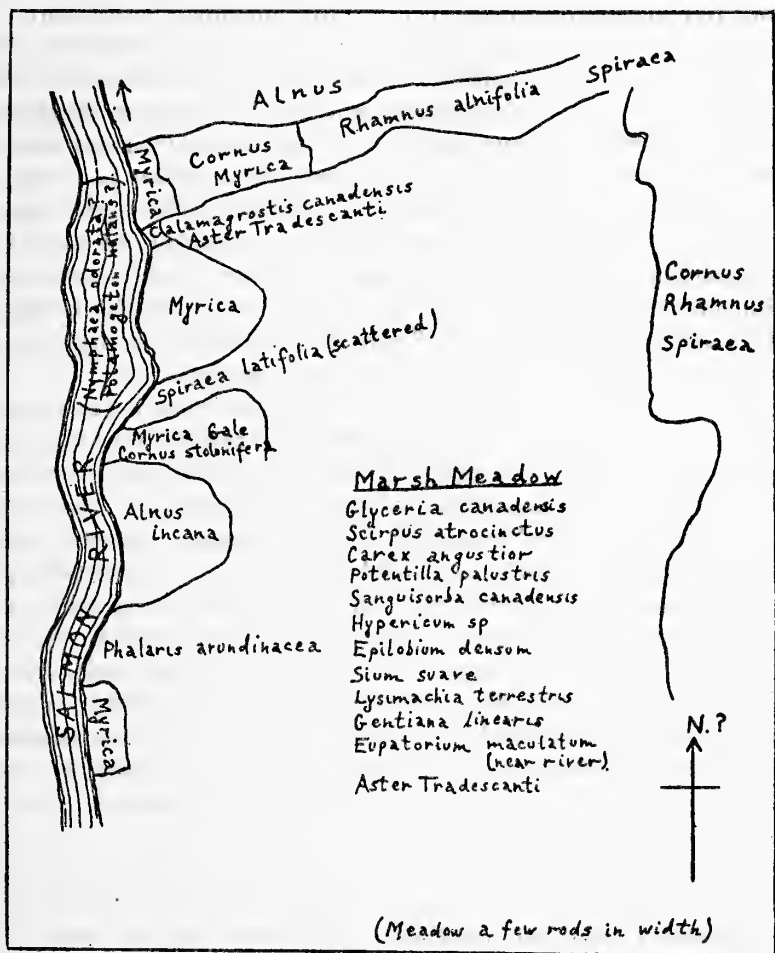 Alnus
Spiraea
Rhamnus alnifolia
Cornus
Myrica
Myrica
Calamagrostis canadensis
Aster Tradescanti
Nymphaea odorata?
Potamogeton natans?
Myrica
Cornus
Rhamnus
Spiraea
Spiraea latifolia (scattered)
Myrica Gale
Cornus stolonifera
Alnus
incana
SALMON RIVER
Phalaris arundinacea
Myrica
Marsh Meadow
Glyceria canadensis
Scirpus atrocinctus
Carex angustior
Potentilla palustris
Sanguisorba canadensis
Hypericum sp
Epilobium densum
Sium suave
Lysimachia terrestris
Gentiana linearis
Eupatorium maculatum
(near river).
Aster Tradescanti
N.?
(Meadow a few rods in width)